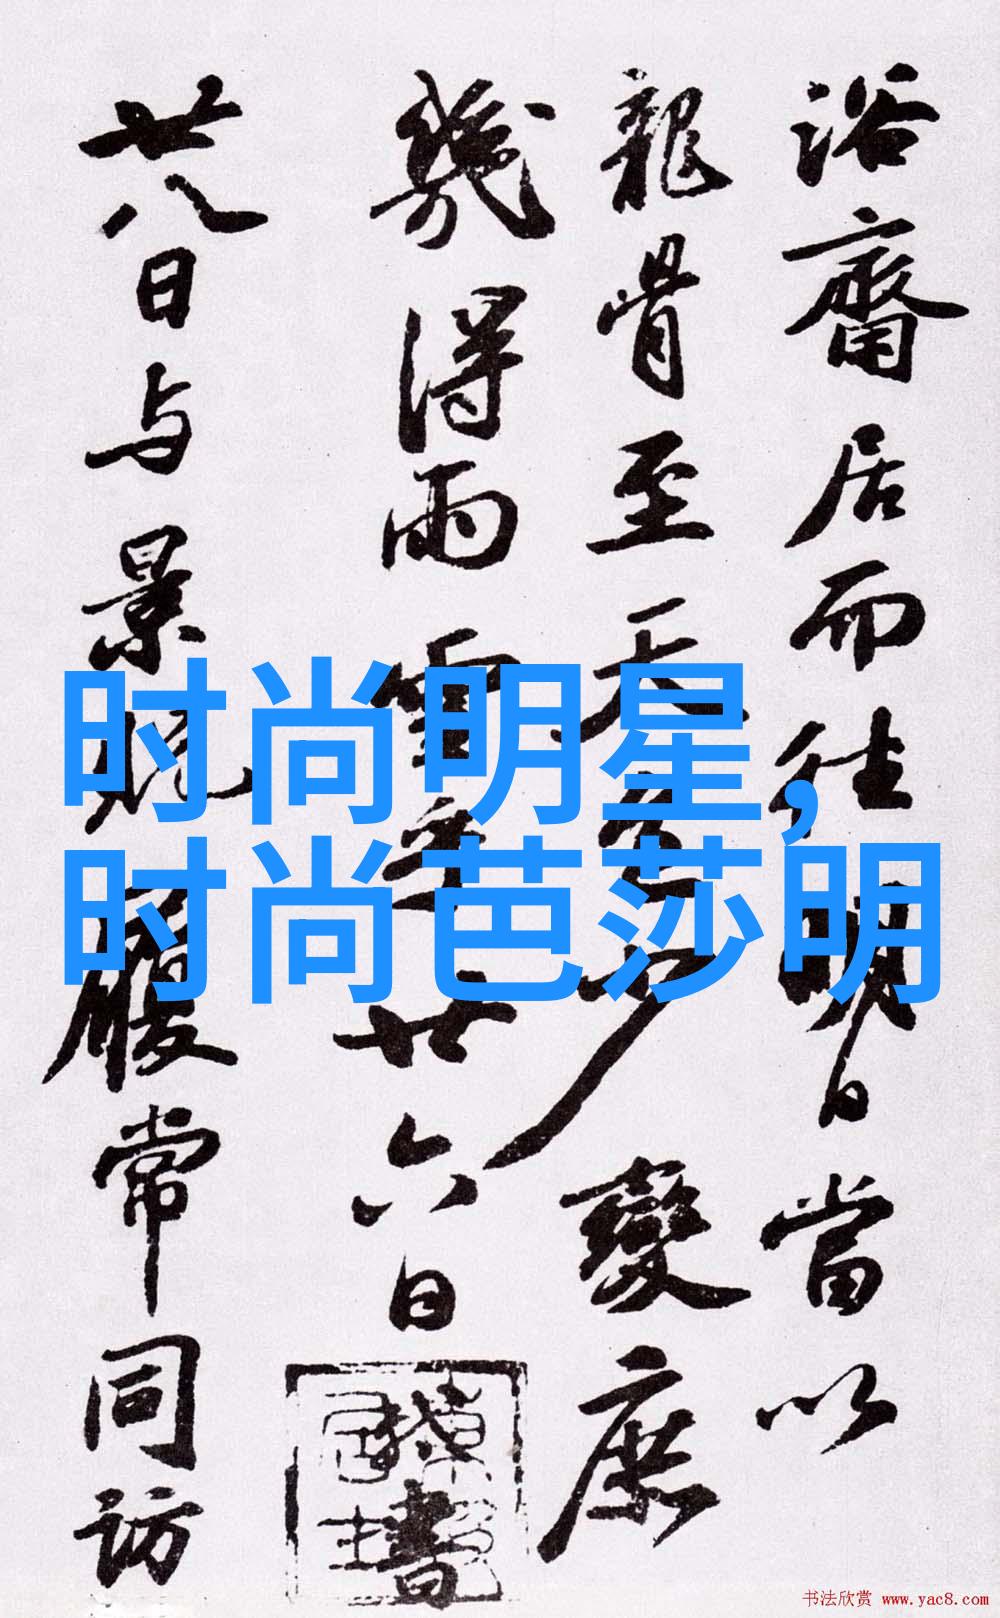 浴齋居而往明日當以
龍骨至天色少變庶
幾得雨雪乎廿六日書
廿八日与景貺履常同訪
时尚明星,
时尚芭莎明
书法欣赏 www.yac8.com